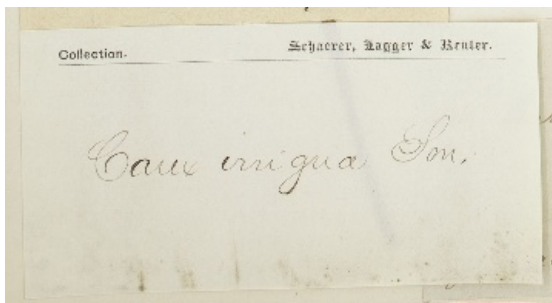 Collection. Schaerer, Lagger & Reuter.
Carex irrigua Sm.